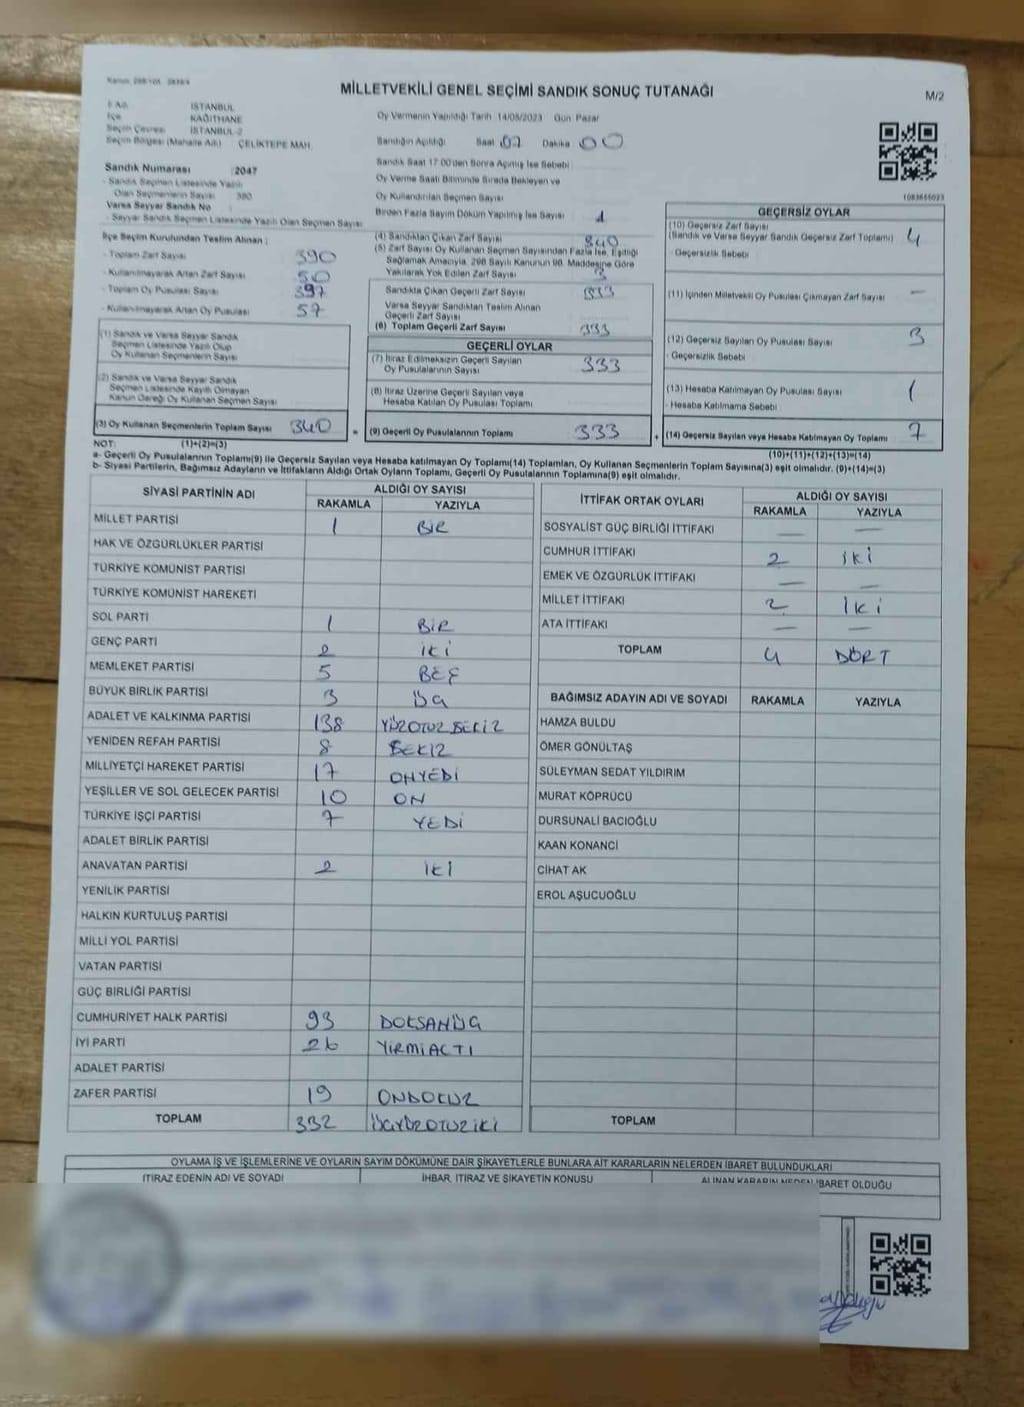 MİLLETVEKİLİ GENEL SEÇİMİ SANDIK SONUÇ TUTANAĞI
M/2
İSTANBUL
İlçe KAĞITHANE
Seçim Çevresi İSTANBUL-2
Seçim Bölgesi (Mahalle Adı) : ÇELİKTEPE MAH.
Oy Vermenin Yapıldığı Tarih 14/05/2023 Gün Pazar
Sandığın Açıldığı Saat 07 Dakika 00
Sandık Saat 17.00'den Sonra Açılmış İse Sebebi
Oy Verme Saati Bitiminde Sırada Bekleyen ve
Oy Kullandırılan Seçmen Sayısı
Birden Fazla Sayım Döküm Yapılmış İse Sayısı 1
Sandık Numarası : 2047
- Sandık Seçmen Listesinde Yazılı
Olan Seçmenlerin Sayısı 380
Varsa Seyyar Sandık No
- Seyyar Sandık Seçmen Listesinde Yazılı Olan Seçmen Sayısı
İlçe Seçim Kurulundan Teslim Alınan :
- Toplam Zarf Sayısı 390
- Kullanılmayarak Artan Zarf Sayısı 50
- Toplam Oy Pusulası Sayısı 397
- Kullanılmayarak Artan Oy Pusulası 57
(1) Sandık ve Varsa Seyyar Sandık
Seçmen Listesinde Yazılı Olup
Oy Kullanan Seçmenlerin Sayısı
(2) Sandık ve Varsa Seyyar Sandık
Seçmen Listesinde Kayıtlı Olmayan
Kanun Gereği Oy Kullanan Seçmen Sayısı
(3) Oy Kullanan Seçmenlerin Toplam Sayısı 340
(4) Sandıktan Çıkan Zarf Sayısı 340
(5) Zarf Sayısı Oy Kullanan Seçmen Sayısından Fazla İse, Eşitliği
Sağlamak Amacıyla, 298 Sayılı Kanunun 98. Maddesine Göre
Yakılarak Yok Edilen Zarf Sayısı
Sandıkta Çıkan Geçerli Zarf Sayısı 333
Varsa Seyyar Sandıktan Teslim Alınan
Geçerli Zarf Sayısı
(6) Toplam Geçerli Zarf Sayısı 333
GEÇERLİ OYLAR
(7) İtiraz Edilmeksizin Geçerli Sayılan
Oy Pusulalarının Sayısı 333
(8) İtiraz Üzerine Geçerli Sayılan veya
Hesaba Katılan Oy Pusulası Toplamı
= (9) Geçerli Oy Pusulalarının Toplamı 333
GEÇERSİZ OYLAR
(10) Geçersiz Zarf Sayısı
(Sandık ve Varsa Seyyar Sandık Geçersiz Zarf Toplamı) 4
- Geçersizlik Sebebi
(11) İçinden Milletvekili Oy Pusulası Çıkmayan Zarf Sayısı —
(12) Geçersiz Sayılan Oy Pusulası Sayısı 3
- Geçersizlik Sebebi
(13) Hesaba Katılmayan Oy Pusulası Sayısı 1
- Hesaba Katılmama Sebebi
+ (14) Geçersiz Sayılan veya Hesaba Katılmayan Oy Toplamı 7
NOT: (1)+(2)=(3) (10)+(11)+(12)+(13)=(14)
a- Geçerli Oy Pusulalarının Toplamı(9) ile Geçersiz Sayılan veya Hesaba katılmayan Oy Toplamı(14) Toplamları, Oy Kullanan Seçmenlerin Toplam Sayısına(3) eşit olmalıdır. (9)+(14)=(3)
b- Siyasi Partilerin, Bağımsız Adayların ve İttifakların Aldığı Ortak Oyların Toplamı, Geçerli Oy Pusulalarının Toplamına(9) eşit olmalıdır.
SİYASİ PARTİNİN ADI ALDIĞI OY SAYISI
RAKAMLA YAZIYLA
MİLLET PARTİSİ 1 BİR
HAK VE ÖZGÜRLÜKLER PARTİSİ
TÜRKİYE KOMÜNİST PARTİSİ
TÜRKİYE KOMÜNİST HAREKETİ
SOL PARTİ 1 BİR
GENÇ PARTİ 2 İKİ
MEMLEKET PARTİSİ 5 BEŞ
BÜYÜK BİRLİK PARTİSİ 3 ÜÇ
ADALET VE KALKINMA PARTİSİ 138 YÜZOTUZ SEKİZ
YENİDEN REFAH PARTİSİ 8 SEKİZ
MİLLİYETÇİ HAREKET PARTİSİ 17 ONYEDİ
YEŞİLLER VE SOL GELECEK PARTİSİ 10 ON
TÜRKİYE İŞÇİ PARTİSİ 7 YEDİ
ADALET BİRLİK PARTİSİ
ANAVATAN PARTİSİ 2 İKİ
YENİLİK PARTİSİ
HALKIN KURTULUŞ PARTİSİ
MİLLİ YOL PARTİSİ
VATAN PARTİSİ
GÜÇ BİRLİĞİ PARTİSİ
CUMHURİYET HALK PARTİSİ 93 DOKSANÜÇ
İYİ PARTİ 26 YİRMİALTI
ADALET PARTİSİ
ZAFER PARTİSİ 19 ONDOKUZ
TOPLAM 332 ÜÇYÜZOTUZİKİ
İTTİFAK ORTAK OYLARI ALDIĞI OY SAYISI
RAKAMLA YAZIYLA
SOSYALİST GÜÇ BİRLİĞİ İTTİFAKI — —
CUMHUR İTTİFAKI 2 İKİ
EMEK VE ÖZGÜRLÜK İTTİFAKI — —
MİLLET İTTİFAKI 2 İKİ
ATA İTTİFAKI — —
TOPLAM 4 DÖRT
BAĞIMSIZ ADAYIN ADI VE SOYADI RAKAMLA YAZIYLA
HAMZA BULDU
ÖMER GÖNÜLTAŞ
SÜLEYMAN SEDAT YILDIRIM
MURAT KÖPRÜCÜ
DURSUNALİ BACIOĞLU
KAAN KONANCİ
CİHAT AK
EROL AŞUCUOĞLU
TOPLAM
OYLAMA İŞ VE İŞLEMLERİNE VE OYLARIN SAYIM DÖKÜMÜNE DAİR ŞİKAYETLERLE BUNLARA AİT KARARLARIN NELERDEN İBARET BULUNDUKLARI
İTİRAZ EDENİN ADI VE SOYADI İHBAR, İTİRAZ VE ŞİKAYETİN KONUSU ALINAN KARARIN NEDEN İBARET OLDUĞU